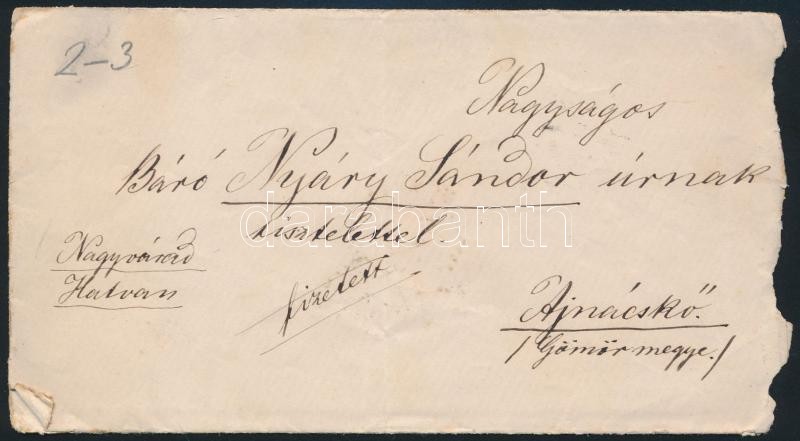 2-3
Nagyságos
Báró Nyáry Sándor úrnak
tisztelettel.
darabanth
Nagyvárad
Hatvan
fizetett
Ajnácskő.
/Gömör megye./